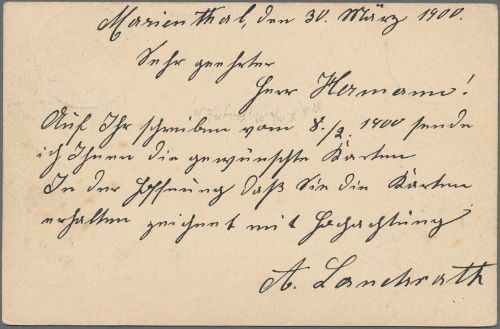 Marienthal, den 30. März 1900.
Sehr geehrter
Herr Hermann!
Auf Ihr schreiben vom 8./2. 1900 sende
ich Ihnen die gewünschte Karten
In der Hoffnung daß Sie die Karten
erhalten zeichnet mit Hochachtung
A.